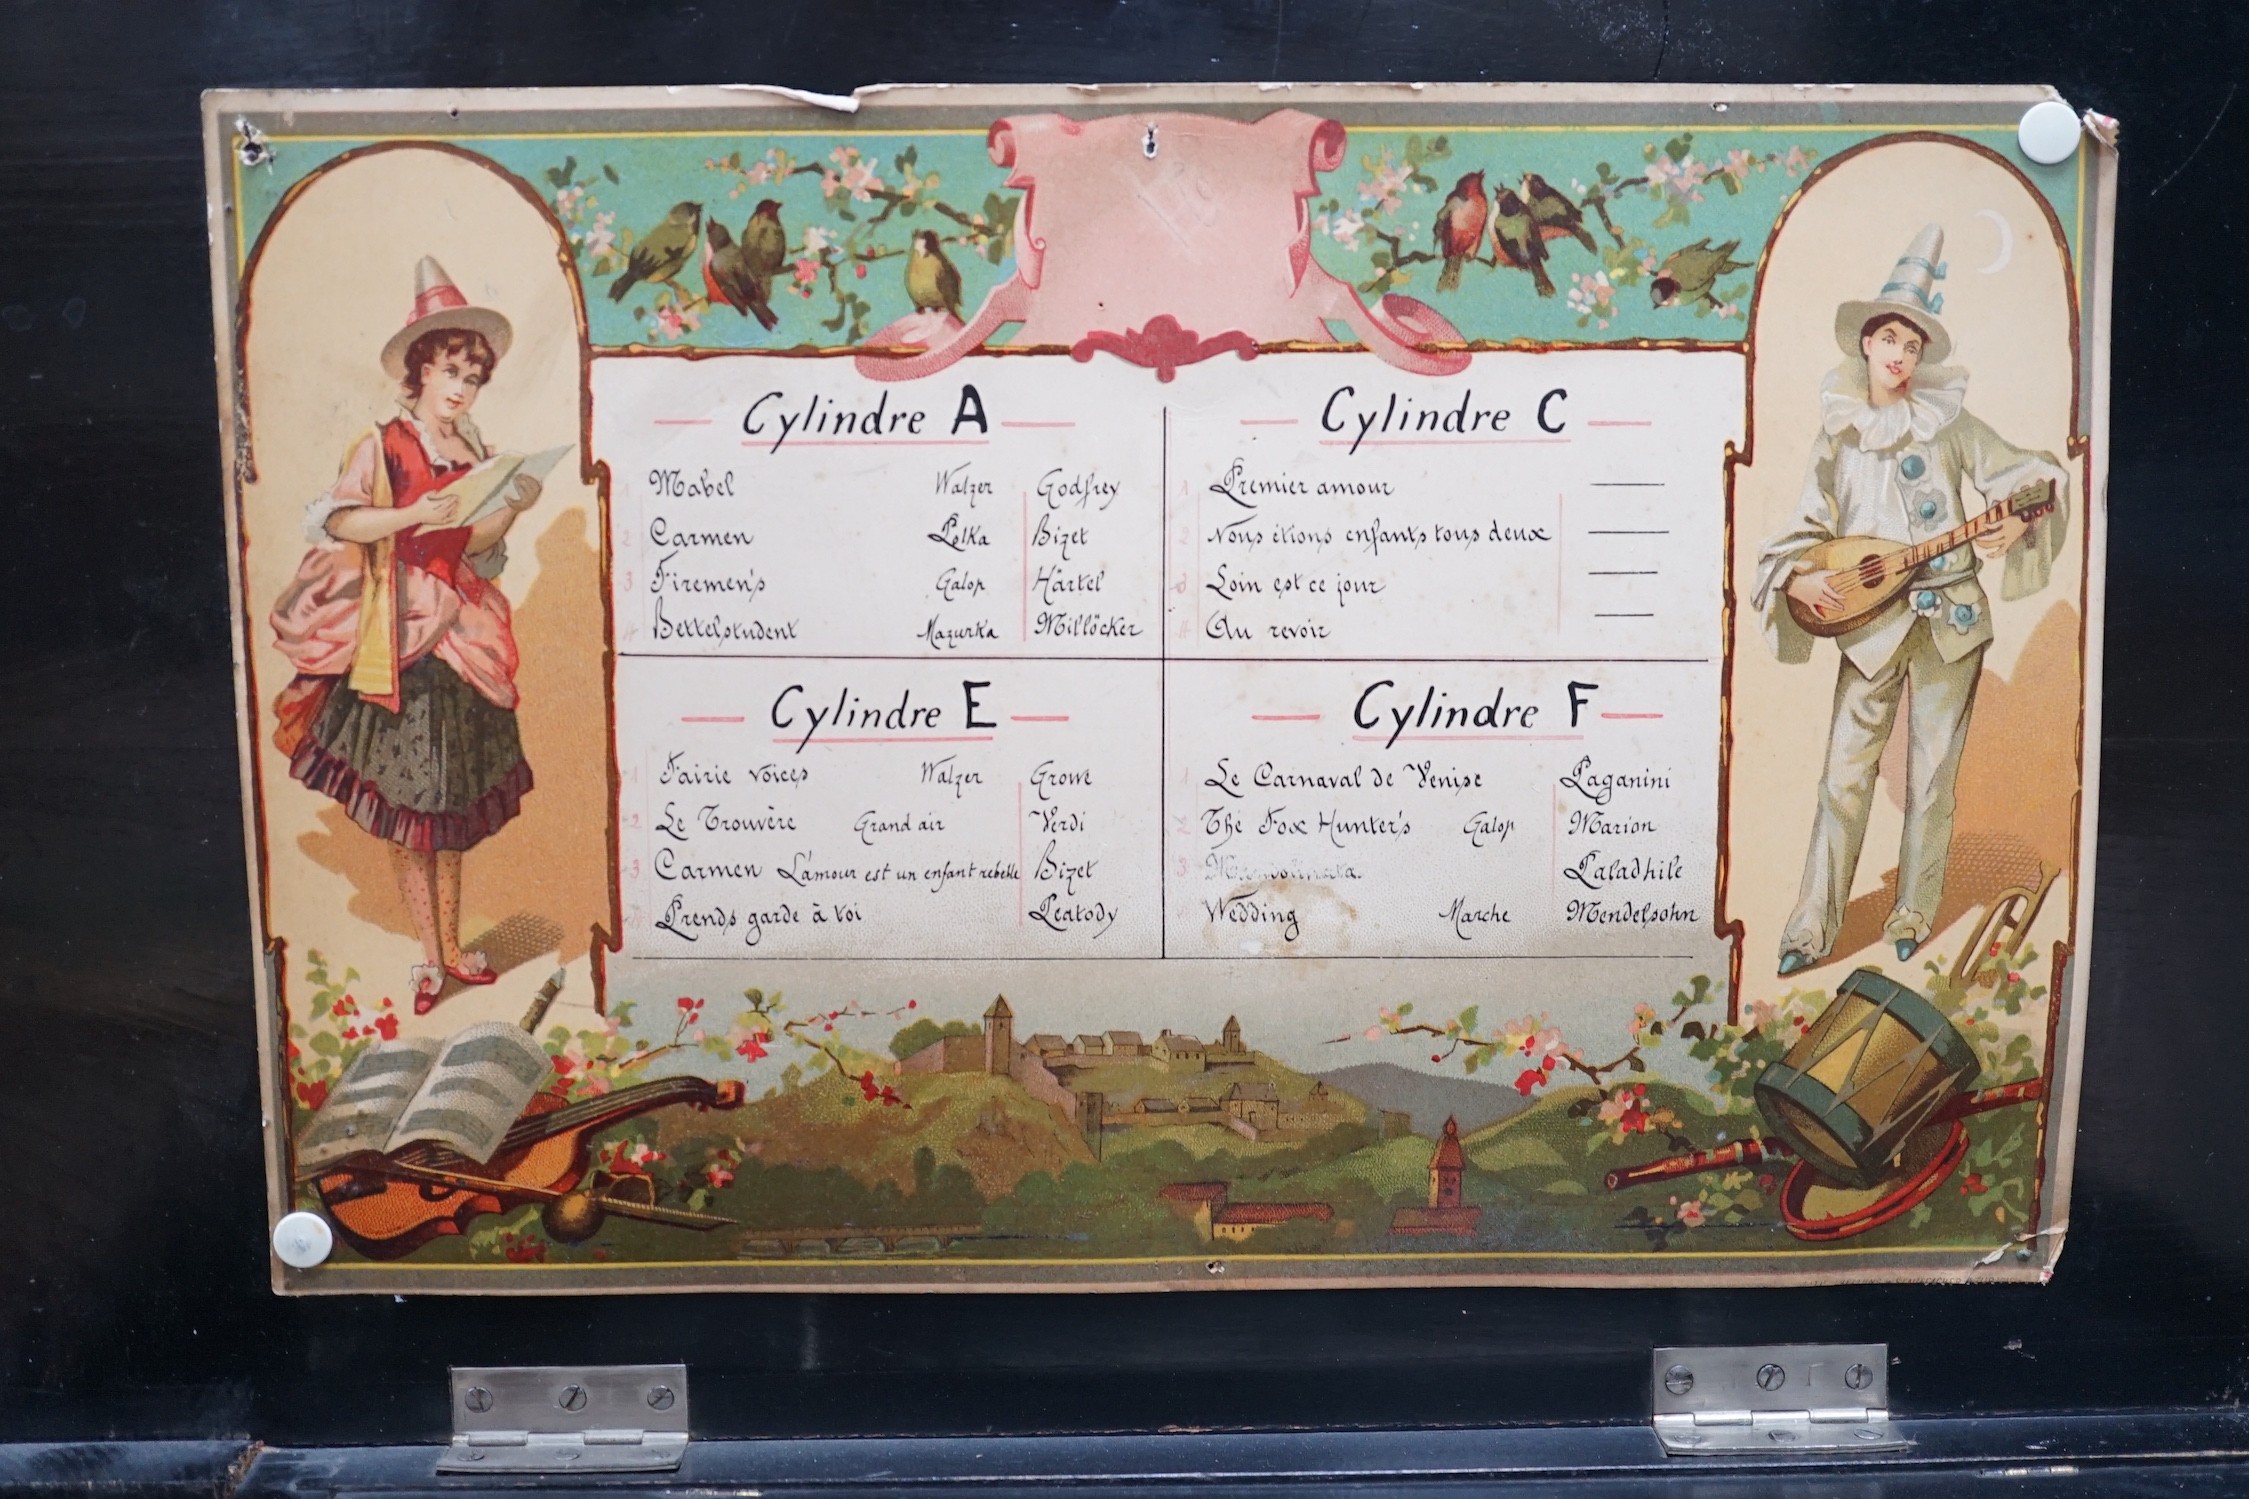 Cylindre A
1 Mabel Walzer Godfrey
2 Carmen Polka Bizet
3 Firemen's Galop Härtel
4 Bettelstudent Mazurka Millöcker
Cylindre C
1 Premier amour
2 Nous étions enfants tous deux
3 Loin est ce jour
4 Au revoir
Cylindre E
1 Fairie voices Walzer Crowe
2 Le Trouvère Grand air Verdi
3 Carmen L'amour est un enfant rebelle Bizet
4 Prends garde à toi Peabody
Cylindre F
1 Le Carnaval de Venise Paganini
2 The Fox Hunter's Galop Marion
3 Mandolinata. Paladhile
4 Wedding Marche Mendelsohn